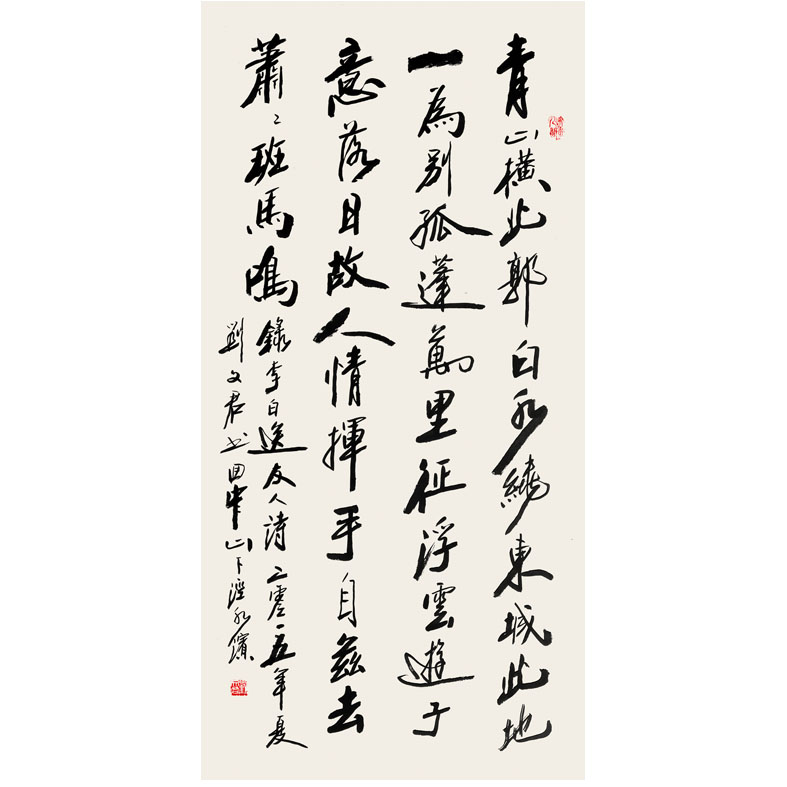 青山橫北郭白水繞東城此地
一為別孤蓬萬里征浮雲遊子
意落日故人情揮手自茲去
蕭〻班馬鳴
錄李白送友人詩二零一五年夏
劉文君書回中山下涇水濱